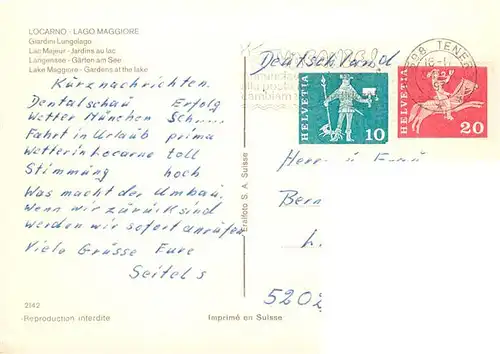 LOCARNO - LAGO MAGGIORE
Giardini Lungolago
Lac Majeur - Jardins au lac
Langensee - Gärten am See
Lake Maggiore - Gardens at the lake
Kurznachrichten.
Dentalschau Erfolg
Wetter München
Fahrt in Urlaub prima
Wetter in Locarno toll
Stimmung hoch
Was macht der Umbau.
Wenn wir zurück sind
werden wir sofort anrufen
Viele Grüsse Eure
Seitel s
2142
Reproduction interdite
Imprimé en Suisse
Eralfoto S. A. Suisse
Deutschland
TENER
HELVETIA
10
HELVETIA
20
Herr u Frau
Bern
5202